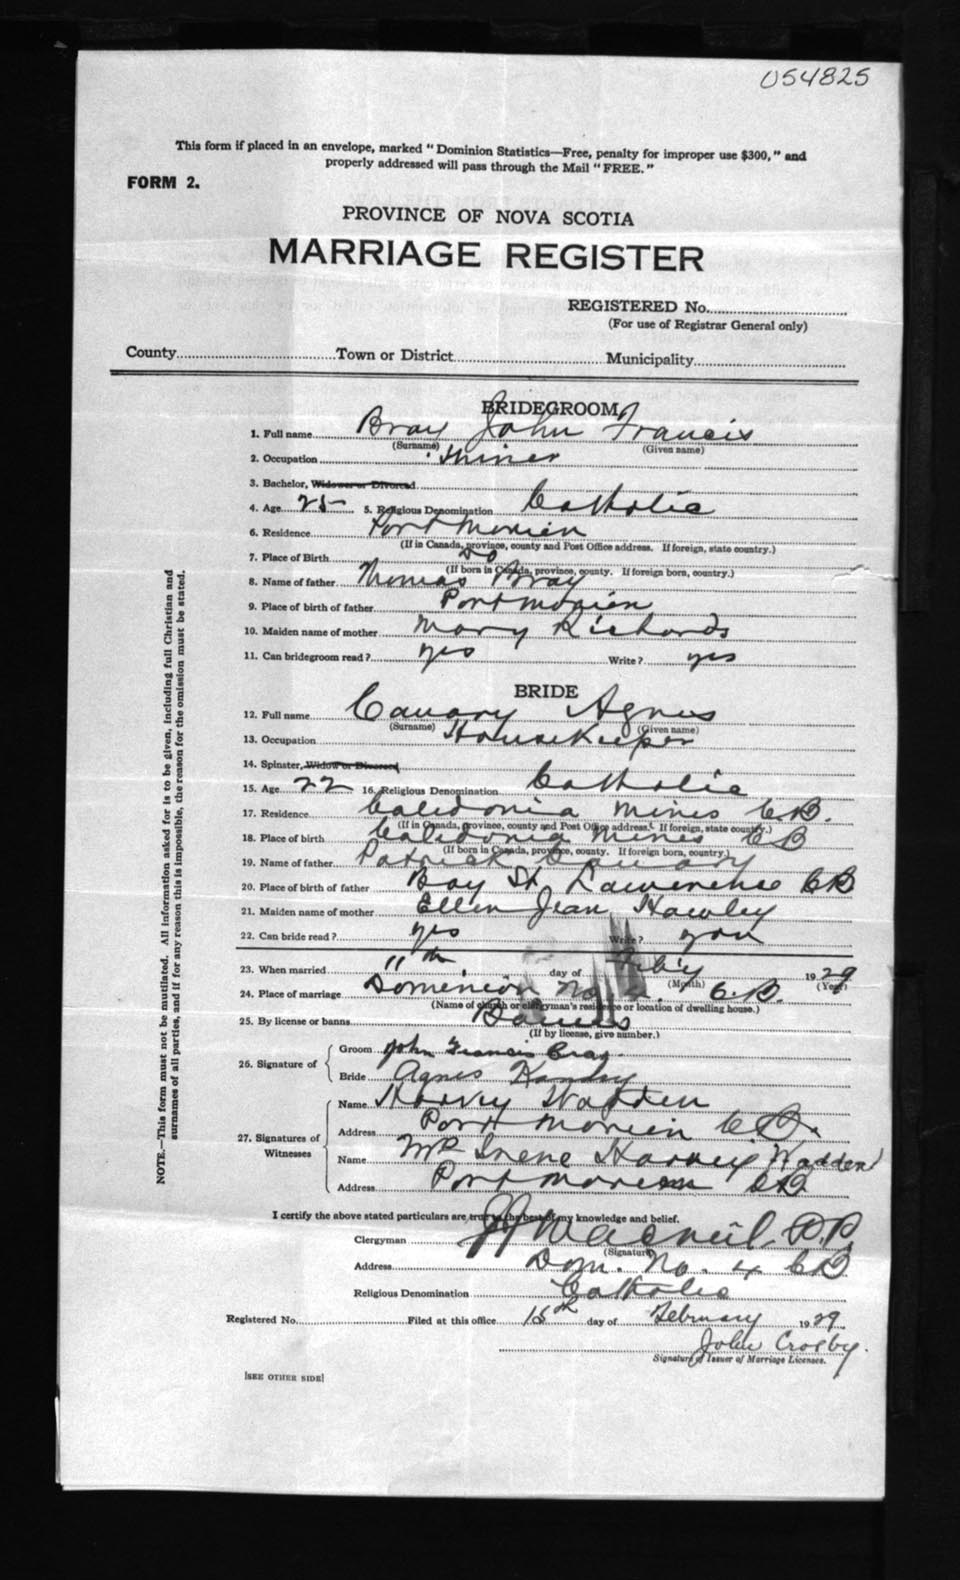 054825
This form if placed in an envelope, marked "Dominion Statistics—Free, penalty for improper use $300," and
properly addressed will pass through the Mail "FREE."
FORM 2.
PROVINCE OF NOVA SCOTIA
MARRIAGE REGISTER
REGISTERED No.
(For use of Registrar General only)
County Town or District Municipality
BRIDEGROOM
1. Full name Bray John Francis
(Surname) (Given name)
2. Occupation Miner
3. Bachelor, Widower or Divorced
4. Age 25 5. Religious Denomination Catholic
6. Residence Port Morien
(If in Canada, province, county and Post Office address. If foreign, state country.)
7. Place of Birth Do
(If born in Canada, province, county. If foreign born, country.)
8. Name of father Thomas Bray
9. Place of birth of father Port Morien
10. Maiden name of mother Mary Richards
11. Can bridegroom read? yes Write? yes
BRIDE
12. Full name Canary Agnes
(Surname) (Given name)
13. Occupation Housekeeper
14. Spinster, Widow or Divorced
15. Age 22 16. Religious Denomination Catholic
17. Residence Caledonia Mines C.B.
(If in Canada, province, county and Post Office address. If foreign, state country.)
18. Place of birth Caledonia Mines CB
(If born in Canada, province, county. If foreign born, country.)
19. Name of father Patrick Canary
20. Place of birth of father Bay St Lawrence CB
21. Maiden name of mother Ellen Jean Hawley
22. Can bride read? yes Write?
23. When married 11th day of Feb'y 1929
(Month) (Year)
24. Place of marriage Dominion No C.B.
(Name of church or clergyman's residence or location of dwelling house.)
25. By license or banns Banns
(If by license, give number.)
26. Signature of
Groom John Francis Bray
Bride Agnes
27. Signatures of Witnesses
Name Harvey Wadden
Address Port Morien C.B.
Name Mrs Irene Harvey Wadden
Address Port Morien CB
I certify the above stated particulars are true to the best of my knowledge and belief.
Clergyman MacNeil P.P.
(Signature)
Address Dom. No. 4 CB
Religious Denomination Catholic
Registered No. Filed at this office 15th day of February 1929
John Crosby.
Signature of Issuer of Marriage Licenses.
[SEE OTHER SIDE]
NOTE.—This form must not be mutilated. All information asked for is to be given, including full Christian and
surnames of all parties, and if for any reason this is impossible, the reason for the omission must be stated.